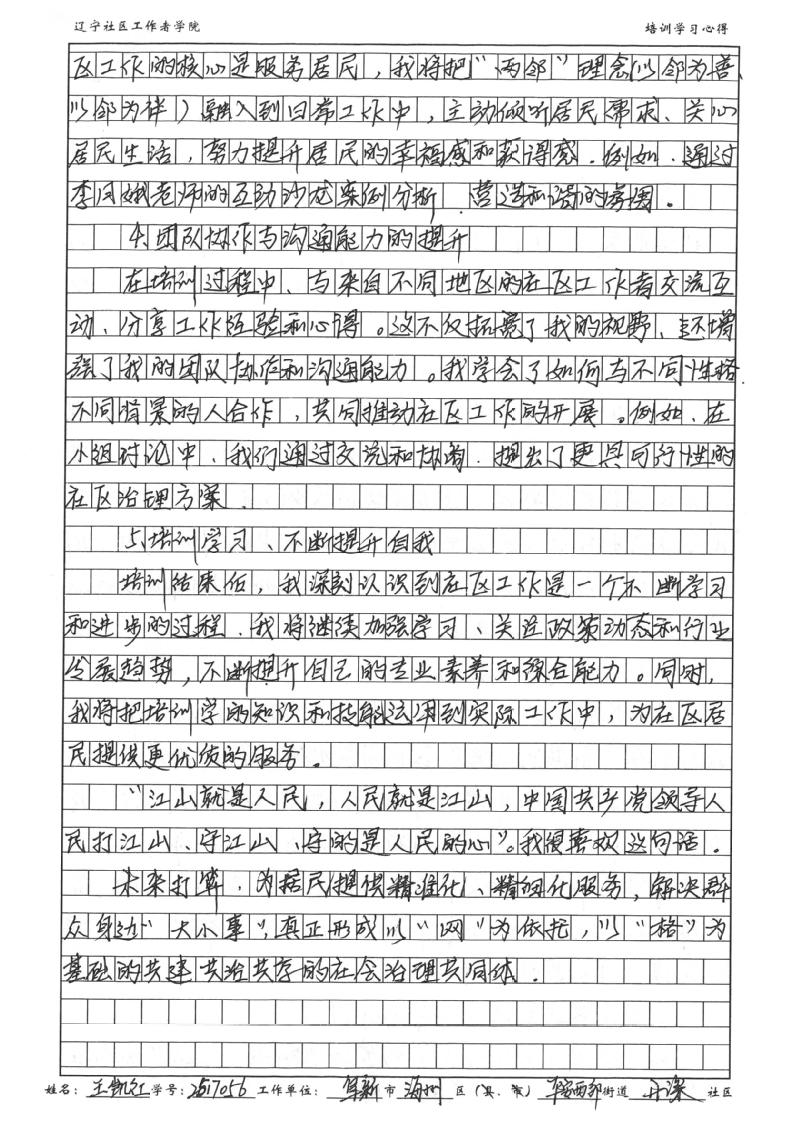 辽宁社区工作者学院 培训学习心得
区工作的核心是服务居民，我将把“两邻”理念（以邻为善、
以邻为伴）融入到日常工作中，主动倾听居民需求、关心
居民生活，努力提升居民的幸福感和获得感．例如．通过
李凤娥老师的互动沙龙案例分断，营造和谐的氛围。
4.团队协作与沟通能力的提升
在培训过程中、与来自不同地区的社区工作者交流互
动、分享工作经验和心得。这不仅拓宽了我的视野、还增
强了我的团队协作和沟通能力。我学会了如何与不同性格．
不同背景的人合作，共同推动社区工作的开展。例如．在
小组讨论中、我们通过交流和协商．提出了更具可行性的
社区治理方案．
5.培训学习、不断提升自我
培训结束后，我深刻认识到社区工作是一个不断学习
和进步的过程．我将继续加强学习、关注政策动态和行业
发展趋势，不断提升自己的专业素养和综合能力。同时，
我将把培训学的知识和技能运用到实际工作中，为社区居
民提供更优质的服务。
“江山就是人民，人民就是江山，中国共产党领导人
民打江山、守江山、守的是人民的心”。我很喜欢这句话．
未来打算．为居民提供精准化、精细化服务，解决群
众身边“大小事”，真正形成以“网”为依托，以“格”为
基础的共建共治共享的社会治理共同体．
姓名：王凯红 学号：2517056 工作单位：阜新市海州区（县、市）平安西部街道 社区